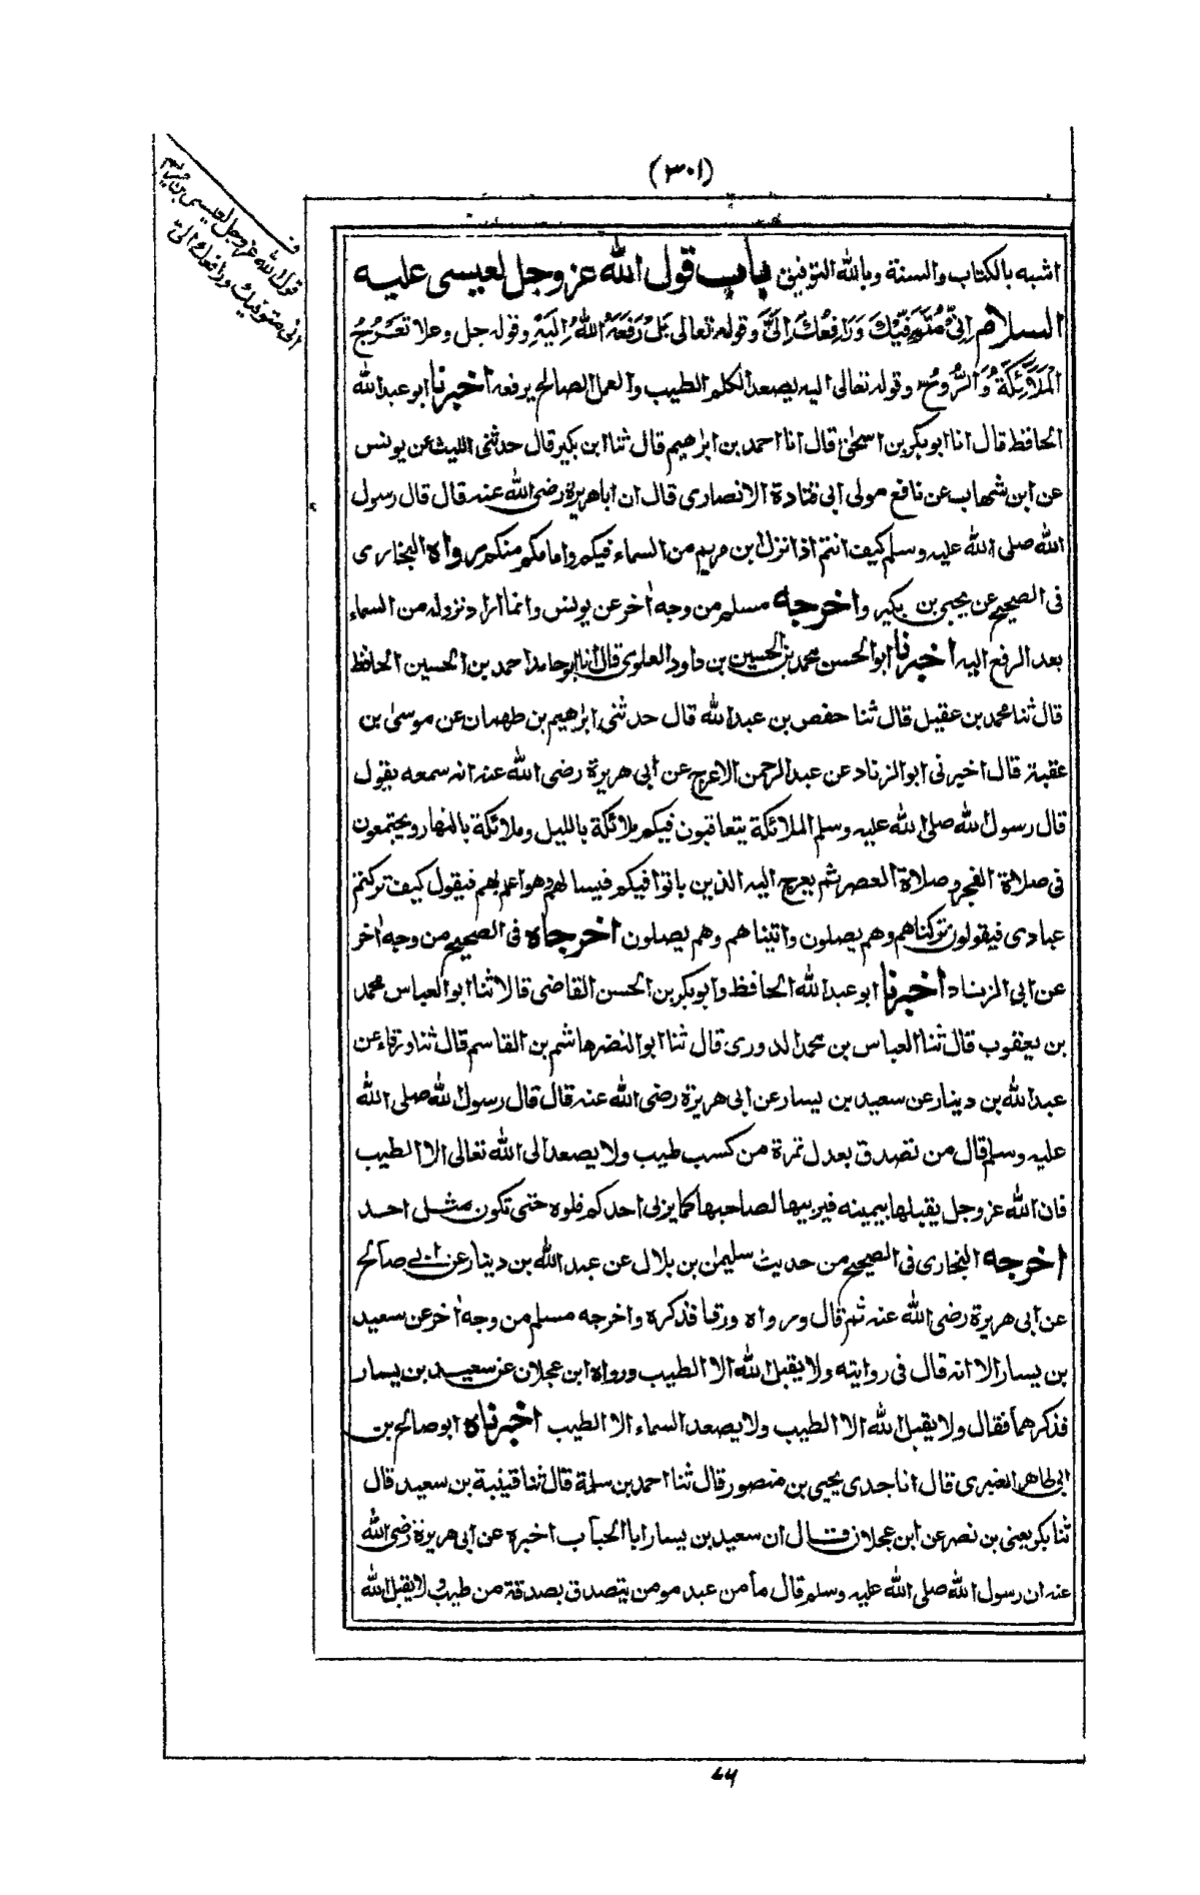 (٣٠١)
ف
قول الله عز وجل لعيسى بن مريم
انى متوفيك ورافعك الىّ
اشبه بالكتاب والسنة وبالله التوفيق باب قول الله عز وجل لعيسى عليه
السلام اِنِّىْ مُتَوَفِّيْكَ وَرَافِعُكَ اِلَىَّ وقوله تعالى بَلْ رَفَعَهُ اللهُ اِلَيْهِ وقوله جل وعلا تَعْرُجُ
الْمَلَآئِكَةُ وَالرُّوْحُ وقوله تعالى اليه يصعد الكلم الطيب والعمل الصالح يرفعه اخبرنا ابو عبدالله
الحافظ قال انا ابوبكر بن اسحٰق قال انا احمد بن ابرٰهيم قال ثنا ابن بكير قال حدثنى الليث عن يونس
عن ابن شهاب عن نافع مولى ابى قتادة الانصارى قال ان اباهريرة رضى الله عنه قال قال رسول
الله صلى الله عليه وسلم كيف انتم اذا نزل ابن مريم من السماء فيكم وامامكم منكم رواه البخارى
فى الصحيح عن يحيى بن بكير واخرجه مسلم من وجه اٰخر عن يونس وانما اراد نزوله من السماء
بعد الرفع اليه اخبرنا ابو الحسن محمد بن الحسين بن داود العلوى قال انا ابو حامد احمد بن الحسين الحافظ
قال ثنا محمد بن عقيل قال ثنا حفص بن عبدالله قال حدثنى ابرٰهيم بن طهمان عن موسىٰ بن
عقبة قال اخبرنى ابو الزناد عن عبدالرحمن الاعرج عن ابى هريرة رضى الله عنه انه سمعه يقول
قال رسول الله صلى الله عليه وسلم الملائكة يتعاقبون فيكم ملائكة بالليل وملائكة بالنهار ويجتمعون
فى صلاة الفجر وصلاة العصر ثم يعرج اليه الذين باتوا فيكم فيسالهم وهو اعلم بهم فيقول كيف تركتم
عبادى فيقولون تركناهم وهم يصلون واتيناهم وهم يصلون اخرجاه فى الصحيح من وجه اٰخر
عن ابى الزناد اخبرنا ابو عبدالله الحافظ وابوبكر بن الحسن القاضى قالا ثنا ابو العباس محمد
بن يعقوب قال ثنا العباس بن محمد الدورى قال ثنا ابو النضر هاشم بن القاسم قال ثنا ورقاء عن
عبدالله بن دينار عن سعيد بن يسار عن ابى هريرة رضى الله عنه قال قال رسول الله صلى الله
عليه وسلم قال من تصدق بعدل تمرة من كسب طيب ولا يصعد الى الله تعالى الا الطيب
فان الله عز وجل يقبلها بيمينه فيربيها لصاحبها كما يربى احدكم فلوه حتى تكون مثل احد
اخرجه البخارى فى الصحيح من حديث سليمٰن بن بلال عن عبدالله بن دينار عن ابى صالح
عن ابى هريرة رضى الله عنه ثم قال ورواه ورقا فذكره واخرجه مسلم من وجه اٰخر عن سعيد
بن يسار الا انه قال فى روايته ولا يقبل الله الا الطيب ورواه ابن عجلان عن سعيد بن يسار
فذكرهما فقال ولا يقبل الله الا الطيب ولا يصعد السماء الا الطيب اخبرناه ابو صالح بن
ابى طاهر العنبرى قال انا جدى يحيى بن منصور قال ثنا احمد بن سلمة قال ثنا قتيبة بن سعيد قال
ثنا بكر يعنى بن نصر عن ابن عجلان قال ان سعيد بن يسار ابا الحباب اخبره عن ابى هريرة رضى الله
عنه ان رسول الله صلى الله عليه وسلم قال ما من عبد مومن يتصدق بصدقة من طيب ولا يقبل الله